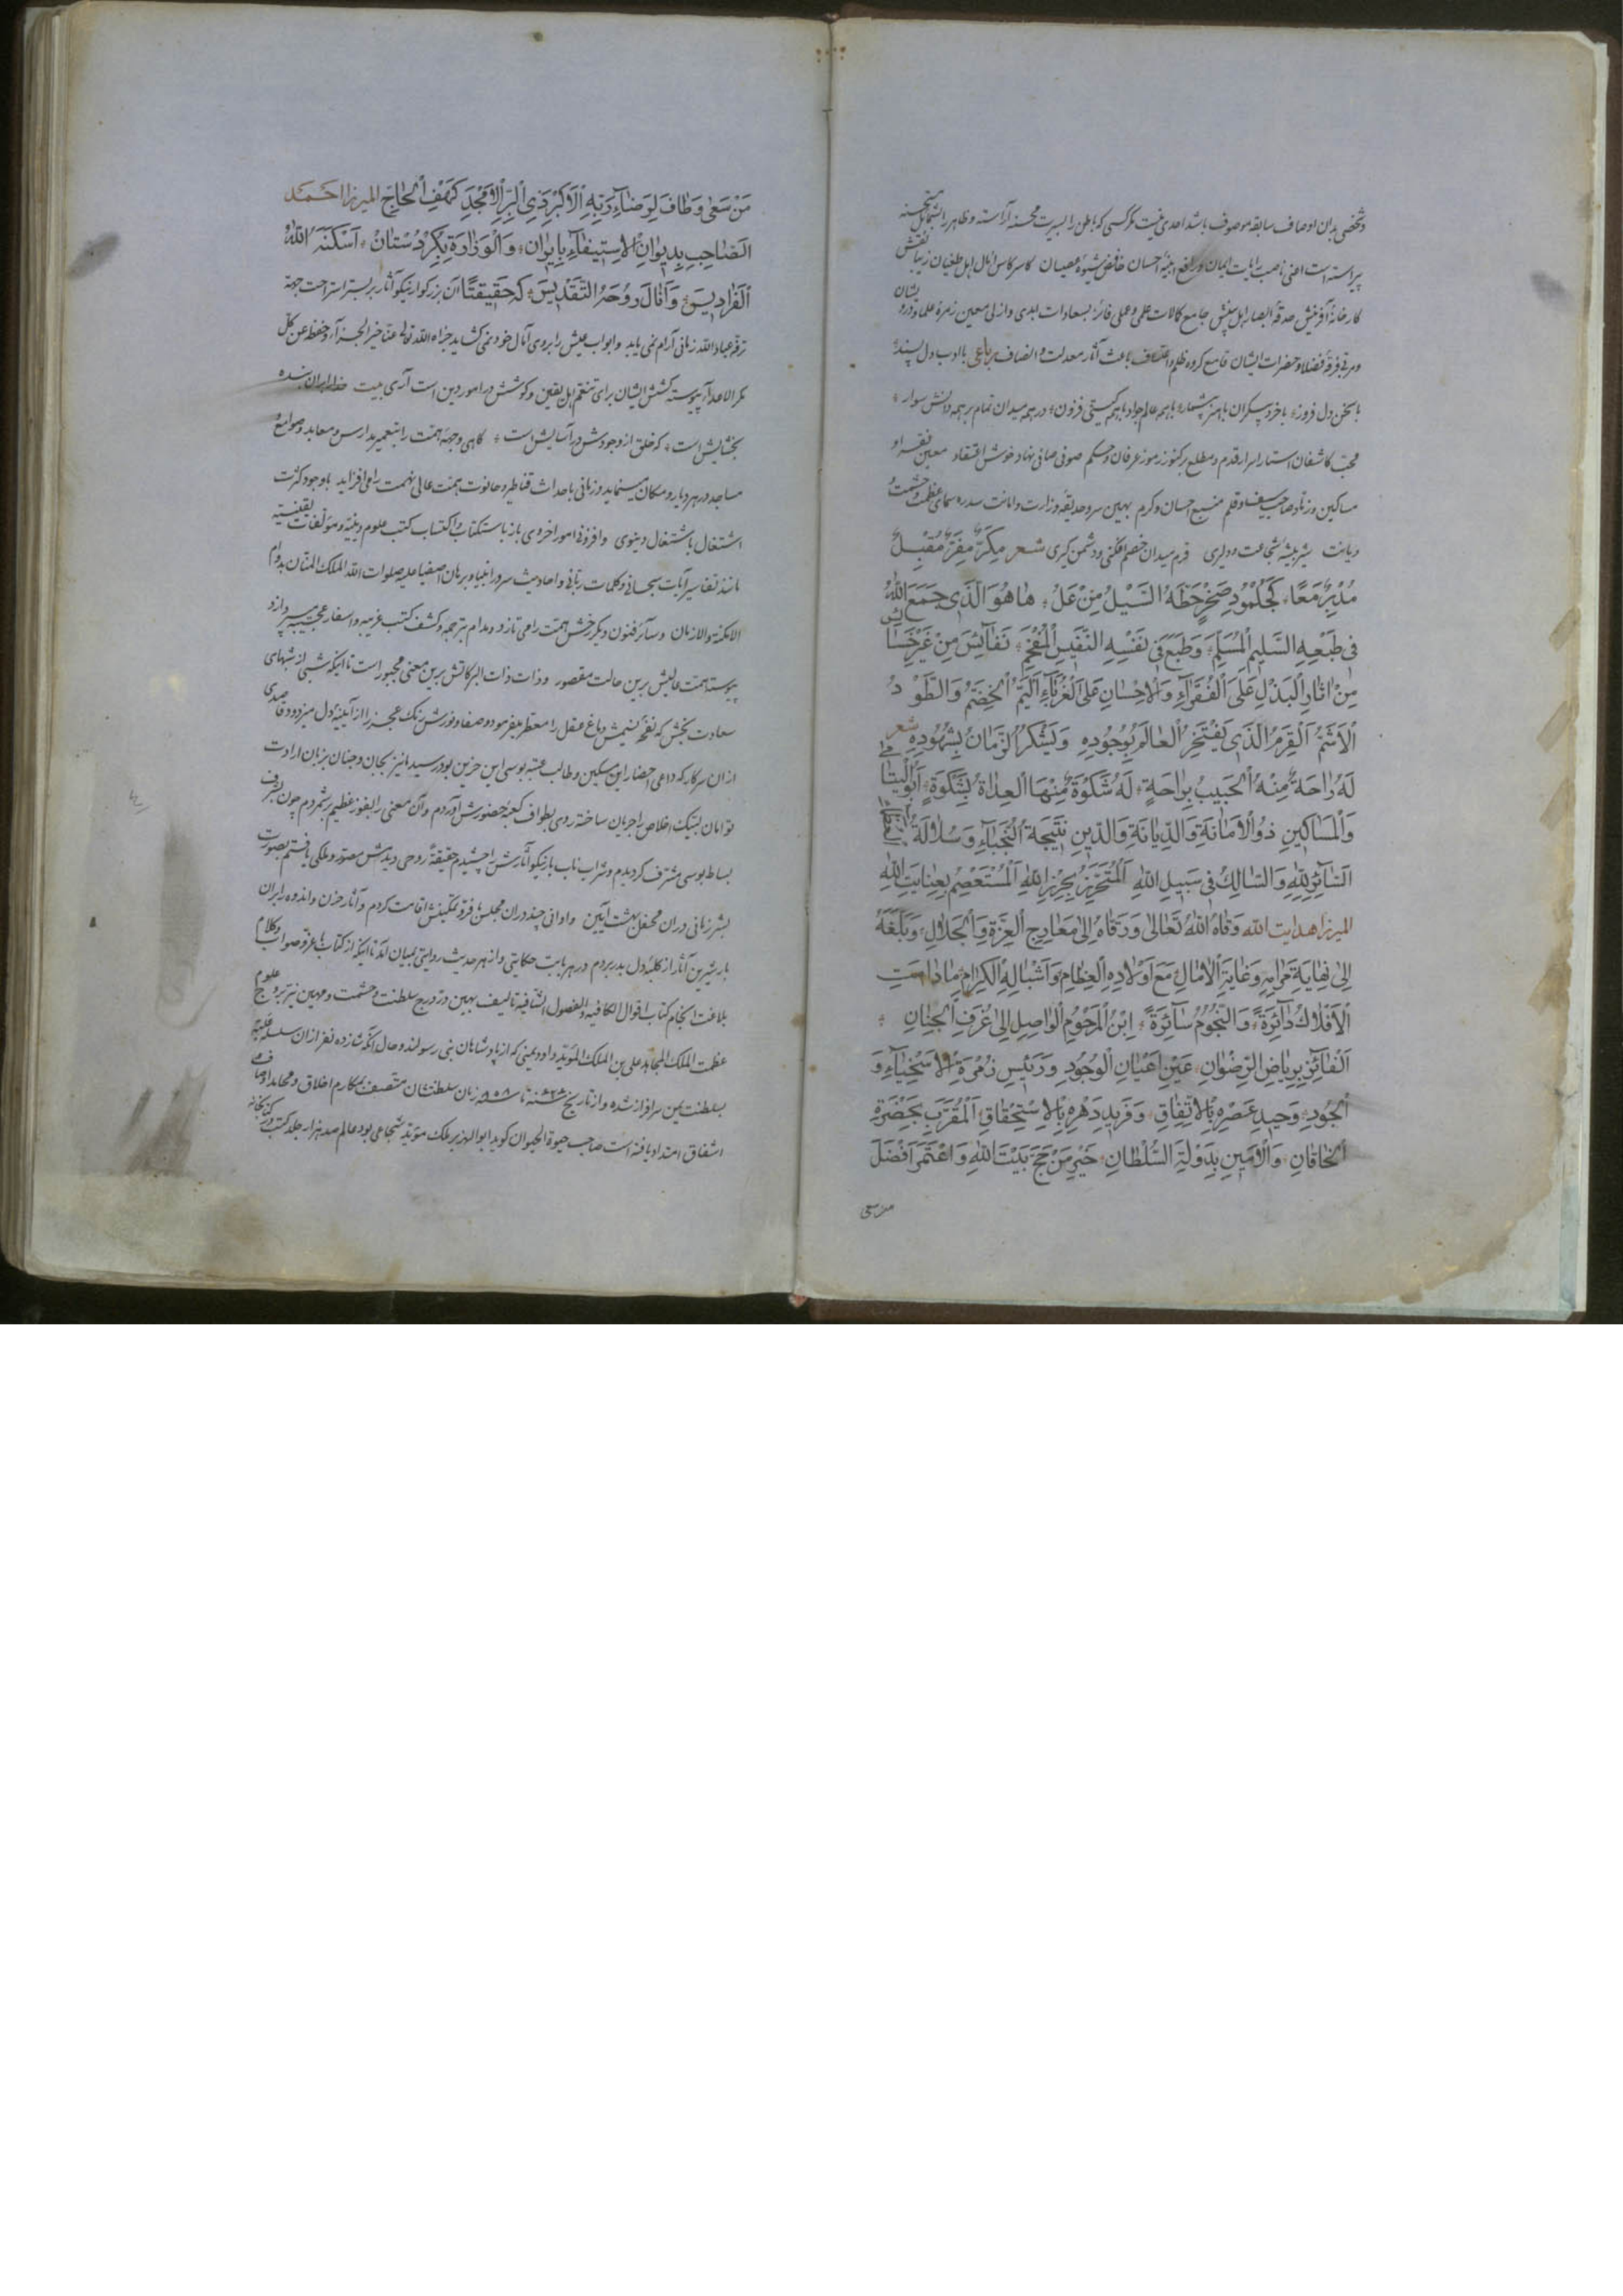 وشخصی بدان اوصاف سابقه موصوف باشد احدی نیست مگر کسی که باطن را بسیرت محسنه آراسته و ظاهر را بشمایل مستحسنه
پیراسته است اعنی ناصب رایات ایمان و رافع ابنیه احسان خافض شیوه عصیان کاسر کاس آمال اهل طغیان زیبا نقش
کارخانه آفرینش حدقه ابصار اهل بینش جامع کمالات علمی و عملی فائز بسعادات ابدی و ازلی معین زمره علما و درویشان
ومربی فرقه فضلا و حضرات ایشان قامع کروه ظلم و اعتساف باعث آثار معدلت و انصاف رباعی با ادب دل پسند
با سخن دل فروز با خرد بیکران با هنر بیشمار با همه عالم جواد با همه کیتی فزون در همه میدان تمام بر همه دانش سوار
محب کاشفان استار اسرار قدم و مطلع بر کنوز رموز عرفان و حکم صوفی صافی نهاد خوش اعتقاد معین فقراء و
مساکین و زهاد صاحب سیف و قلم منبع احسان و کرم بهین سرو حدیقه وزارت و امانت سدره سمای عظمت و حشمت و
دیانت شیر بیشه شجاعت و دلیری قرم میدان خصم افکنی و دشمن کیری شعر مِکَرٍّ مِفَرٍّ مُقْبِلٍ
مُدْبِرٍ مَعًا کَجُلْمُودِ صَخْرٍ حَطَّهُ السَّیْلُ مِنْ عَلُ هَا هُوَ الَّذِی جَمَعَ اللهُ
فی طَبْعِهِ السَّلِیمِ الْمُسَلَّمِ وَطَبَعَ فی نَفْسِهِ النَّفِیسِ الْمُفَخَّمِ نَفَائِسَ مِنْ غَیْرِ خَسَائِس
مِنْ اٰثارِ الْبَذْلِ عَلَی الْفُقَرَآءِ وَالْاِحْسانِ عَلَی الْغُرَبَآءِ اَلْیَمُّ الْخِضَمُّ وَالطَّوْدُ
الْاَشَمُّ اَلْقَرْمُ الَّذی یَفْتَخِرُ الْعالَمُ بِوُجُودِهِ وَیَشْکُرُ الزَّمانُ بِشُهُودِهِ شعر
لَهُ راحَةٌ مِنْهُ الْحَبیبُ بِراحَةٍ لَهُ شَکْوَةٌ مِنْهَا الْعِداةُ بِشَکْوَةٍ اَبُو الْیَتامٰی
وَالْمَساکینِ ذُو الْاَمانَةِ وَالدِّیانَةِ وَالدّینِ نَتیجَةُ النُّجَبآءِ وَسُلالَةُ
السّائِرُ لِلّٰهِ وَالسّالِکُ فی سَبیلِ اللهِ اَلْمُتَحَرِّزُ بِحِرْزِ اللهِ اَلْمُسْتَعْصِمُ بِعِنایَتِ اللهِ
المیرزا هدایت الله وَقاهُ اللهُ تَعالٰی وَرَقاهُ اِلٰی مَعارِجِ الْعِزَّةِ وَالْجَلالِ وَبَلَّغَهُ
اِلٰی نِهایَةِ مَرامِهِ وَغایَةِ الْاٰمالِ مَعَ اَوْلادِهِ الْعِظامِ وَاَشْبالِهِ الْکِرامِ مادامَتِ
الْاَفْلاکُ دآئِرَةً وَالنُّجُومُ سآئِرَةً اِبْنُ الْمَرْحُومِ الْواصِلِ اِلٰی غُرَفِ الْجِنانِ
اَلْفآئِزِ بِرِیاضِ الرِّضْوانِ عَیْنِ اَعْیانِ الْوُجُودِ وَرَئیسِ زُمْرَةِ الْاَسْخِیآءِ وَ
الْجُودِ وَحیدِ عَصْرِهِ بِالْاِتِّفاقِ وَفَریدِ دَهْرِهِ بِالْاِسْتِحْقاقِ اَلْمُقَرَّبِ بِحَضْرَةِ
الْخاقانِ وَالْاَمینِ بِدَوْلَةِ السُّلْطانِ خَیْرِ مَنْ حَجَّ بَیْتَ اللهِ وَاعْتَمَرَ اَفْضَلَ
من سعی
مَنْ سَعٰی وَطافَ لِرَضآءِ رَبِّهِ الْاَکْبَرِ ذِی الْبِرِّ الْاَمْجَدِ کَهْفِ الْحاجِّ المیرزا احمد
الصّاحِبِ بِدیوانِ الْاِسْتیفآءِ بِایرانِ وَالْوِزارَةِ بِکُرْدِسْتانْ اَسْکَنَهُ اللهُ
الْفَرادیسَ وَاَنالَ رُوحَهُ التَّقْدیسَ که حقیقتًا آن بزرکوار نیکو آثار بر بستر استراحت جهة
ترفه عباد الله زمانی آرام نمی یابد وابواب عیش را بروی آمال خود نمی کشاید جزاه الله تعالی عنا خیر الجزآء وحفظه عن کل
مکر الاعدآء پیوسته کشش ایشان برای تنعم اهل یقین و کوشش در امور دین است آری بیت خدا را بران بنده
بخشایش است که خلق از وجودش در آسایش است کاهی وجهه همت را بتعمیر مدارس و معابد وصوامع
مساجد در هر دیار و مکان مینماید و زمانی باحداث قناطیر و حانوت همت عالی نهمت را می افزاید باوجود کثرت
اشتغال باشتغال دنیوی وافزونی امور اخروی باز باستکتاب و اکتساب کتب علوم دینیه و مؤلفات یقینیه
مانند تفاسیر آیات سبحانی و کلمات ربانی و احادیث سرور انبیا و برهان اصفیا علیه صلوات الله الملک المنان بدوام
الامکنة والازمان وسائر فنون دیکر رخش همت را می تازد و مدام بترجمه و کشف کتب غریبه واسفار عجیبه میپردازد
پیوسته همت عالیش برین حالت مقصور وذات ذات البرکاتش برین معنی مجبور است تا اینکه شبی از شبهای
سعادت بخش که نفحه نسیمش دماغ عقل را معطر میفرمود و صفا و نورش زنک عجز را از آیینه دل میزدود قاصدی
از ان سرکار که داعی احضار این مسکین وطالب عتبه بوسی این حزین بود رسید مانیز بجان وجنان بزبان ارادت
توامان لبیک اخلاص را جریان ساخته روی بطواف کعبه حضورش آوردم وآن معنی را بفوز عظیم برشمردم چون بشرف
بساط بوسی مشرف کردیدم و شراب ناب باز نیکو آثارش را چشیدم حقیقةً روحی دیدمش مصور و ملکی یافتم بصورت
بشر زمانی دران محفل بهشت آیین واوانی چند دران مجلس با فر و تمکینش اقامت کردم وآثار حزن واندوه را بران
بار شیرین آثار از کلبه دل بدر بردم در هر بابت حکایتی و از هر حدیث روایتی ببیان آمد تا اینکه از کتاب با عز و صواب وکلام
بلاغت انجام کتاب اقوال الکافیه والفصول الشافیة تالیف بهین در درج سلطنت و حشمت و مهین نیر بروج علوم
عظمت الملک المجاهد علی بن الملک المؤید داود یمنی که از پادشاهان بنی رسولند و حال آنکه شانزده نفر ازان سلسله علیه
بسلطنت یمن سرافراز شده واز تاریخ سنه ۶۲۸ تا سنه ۸۵۸ زمان سلطنتشان متصف بمکارم اخلاق و محامد اوصاف
اشفاق امتداد یافته است صاحب حیوة الحیوان کوید ابو الهزبر ملک مؤید شجاعی بود عالم صد هزار جلد کتب در کتابخانه